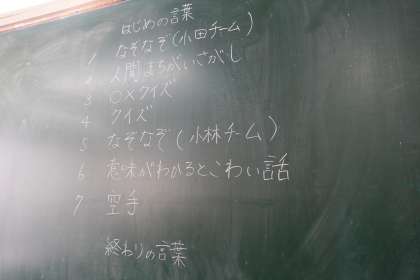 はじめの言葉
1 なぞなぞ(小田チーム)
2 人間まちがいさがし
3 ○×クイズ
4 クイズ
5 なぞなぞ(小林チーム)
6 意味がわかるとこわい話
7 空手
終わりの言葉